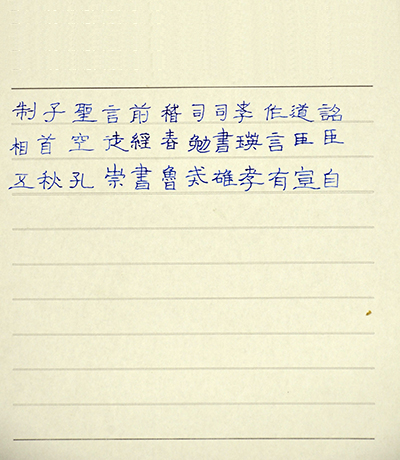 制子聖言前稽司司孝作道詔
相首空徒經春勉書瑛言臣臣
五秋孔崇書魯戒雄孝有宣自